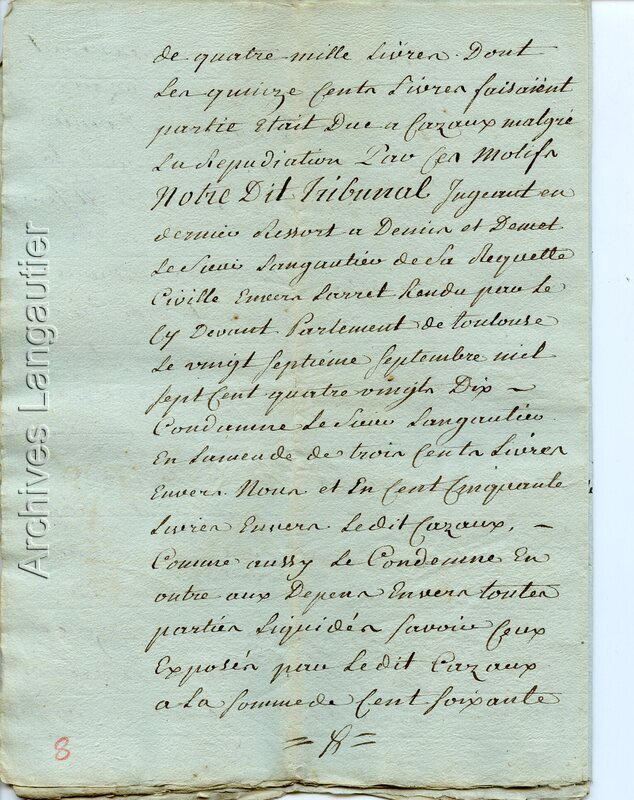 de quatre mille Livres. Dont
Les quinze Cents Livres faisaient
partie Etait Due a Cazaux malgré
La Repudiation Par Ces Motifs
Notre Dit Tribunal Jugeant en
dernier Ressort a Demis et Demet
Le Sieur Langautier de Sa Requette
Civille Envers Larret Rendu par Le
Cy Devant Parlement de toulouse
Le vingt Septième Septembre miel
Sept Cent quatre vingts Dix –
Condamne Le Sieur Langautier
En Lamende de trois Cents Livres
Envers Nous et En Cent Cinquante
Livres Envers Ledit Cazaux, –
Comme aussy Le Condemne En
outre aux Depens Envers toutes
parties Liquidés Savoir Ceux
Exposés par Ledit Cazaux
a La Somme de Cent Soixante
8
Archives Langautier